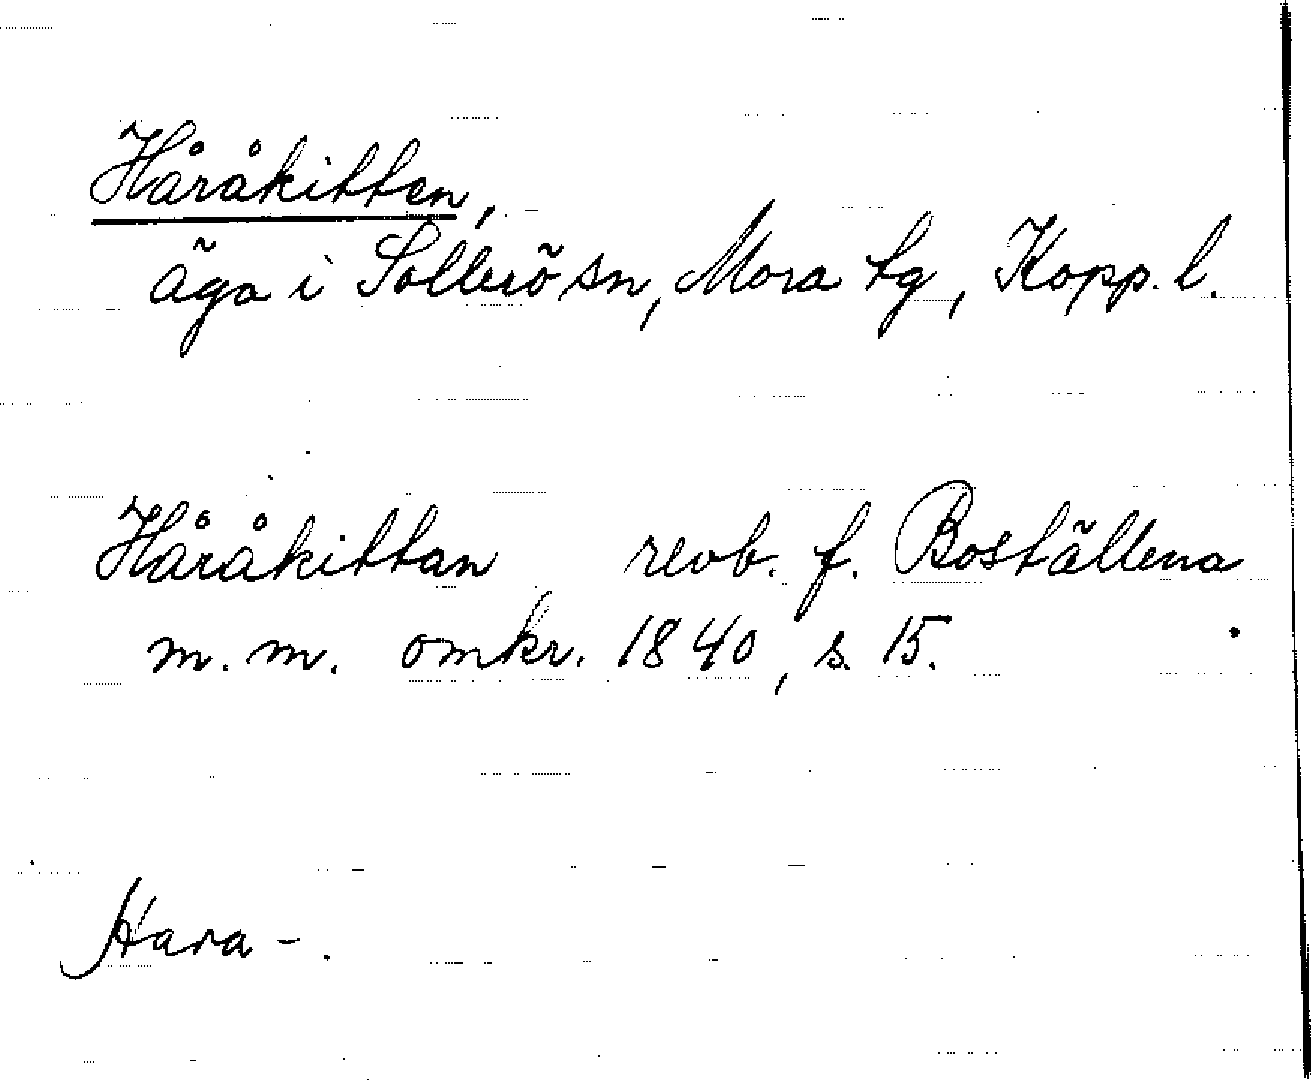 Håråkitten,
äga i Sollerö sn, Mora tg, Kopp. l.
Håråkittan revb. f. Boställena
m. m. omkr. 1840, s. 15.
Hara -.